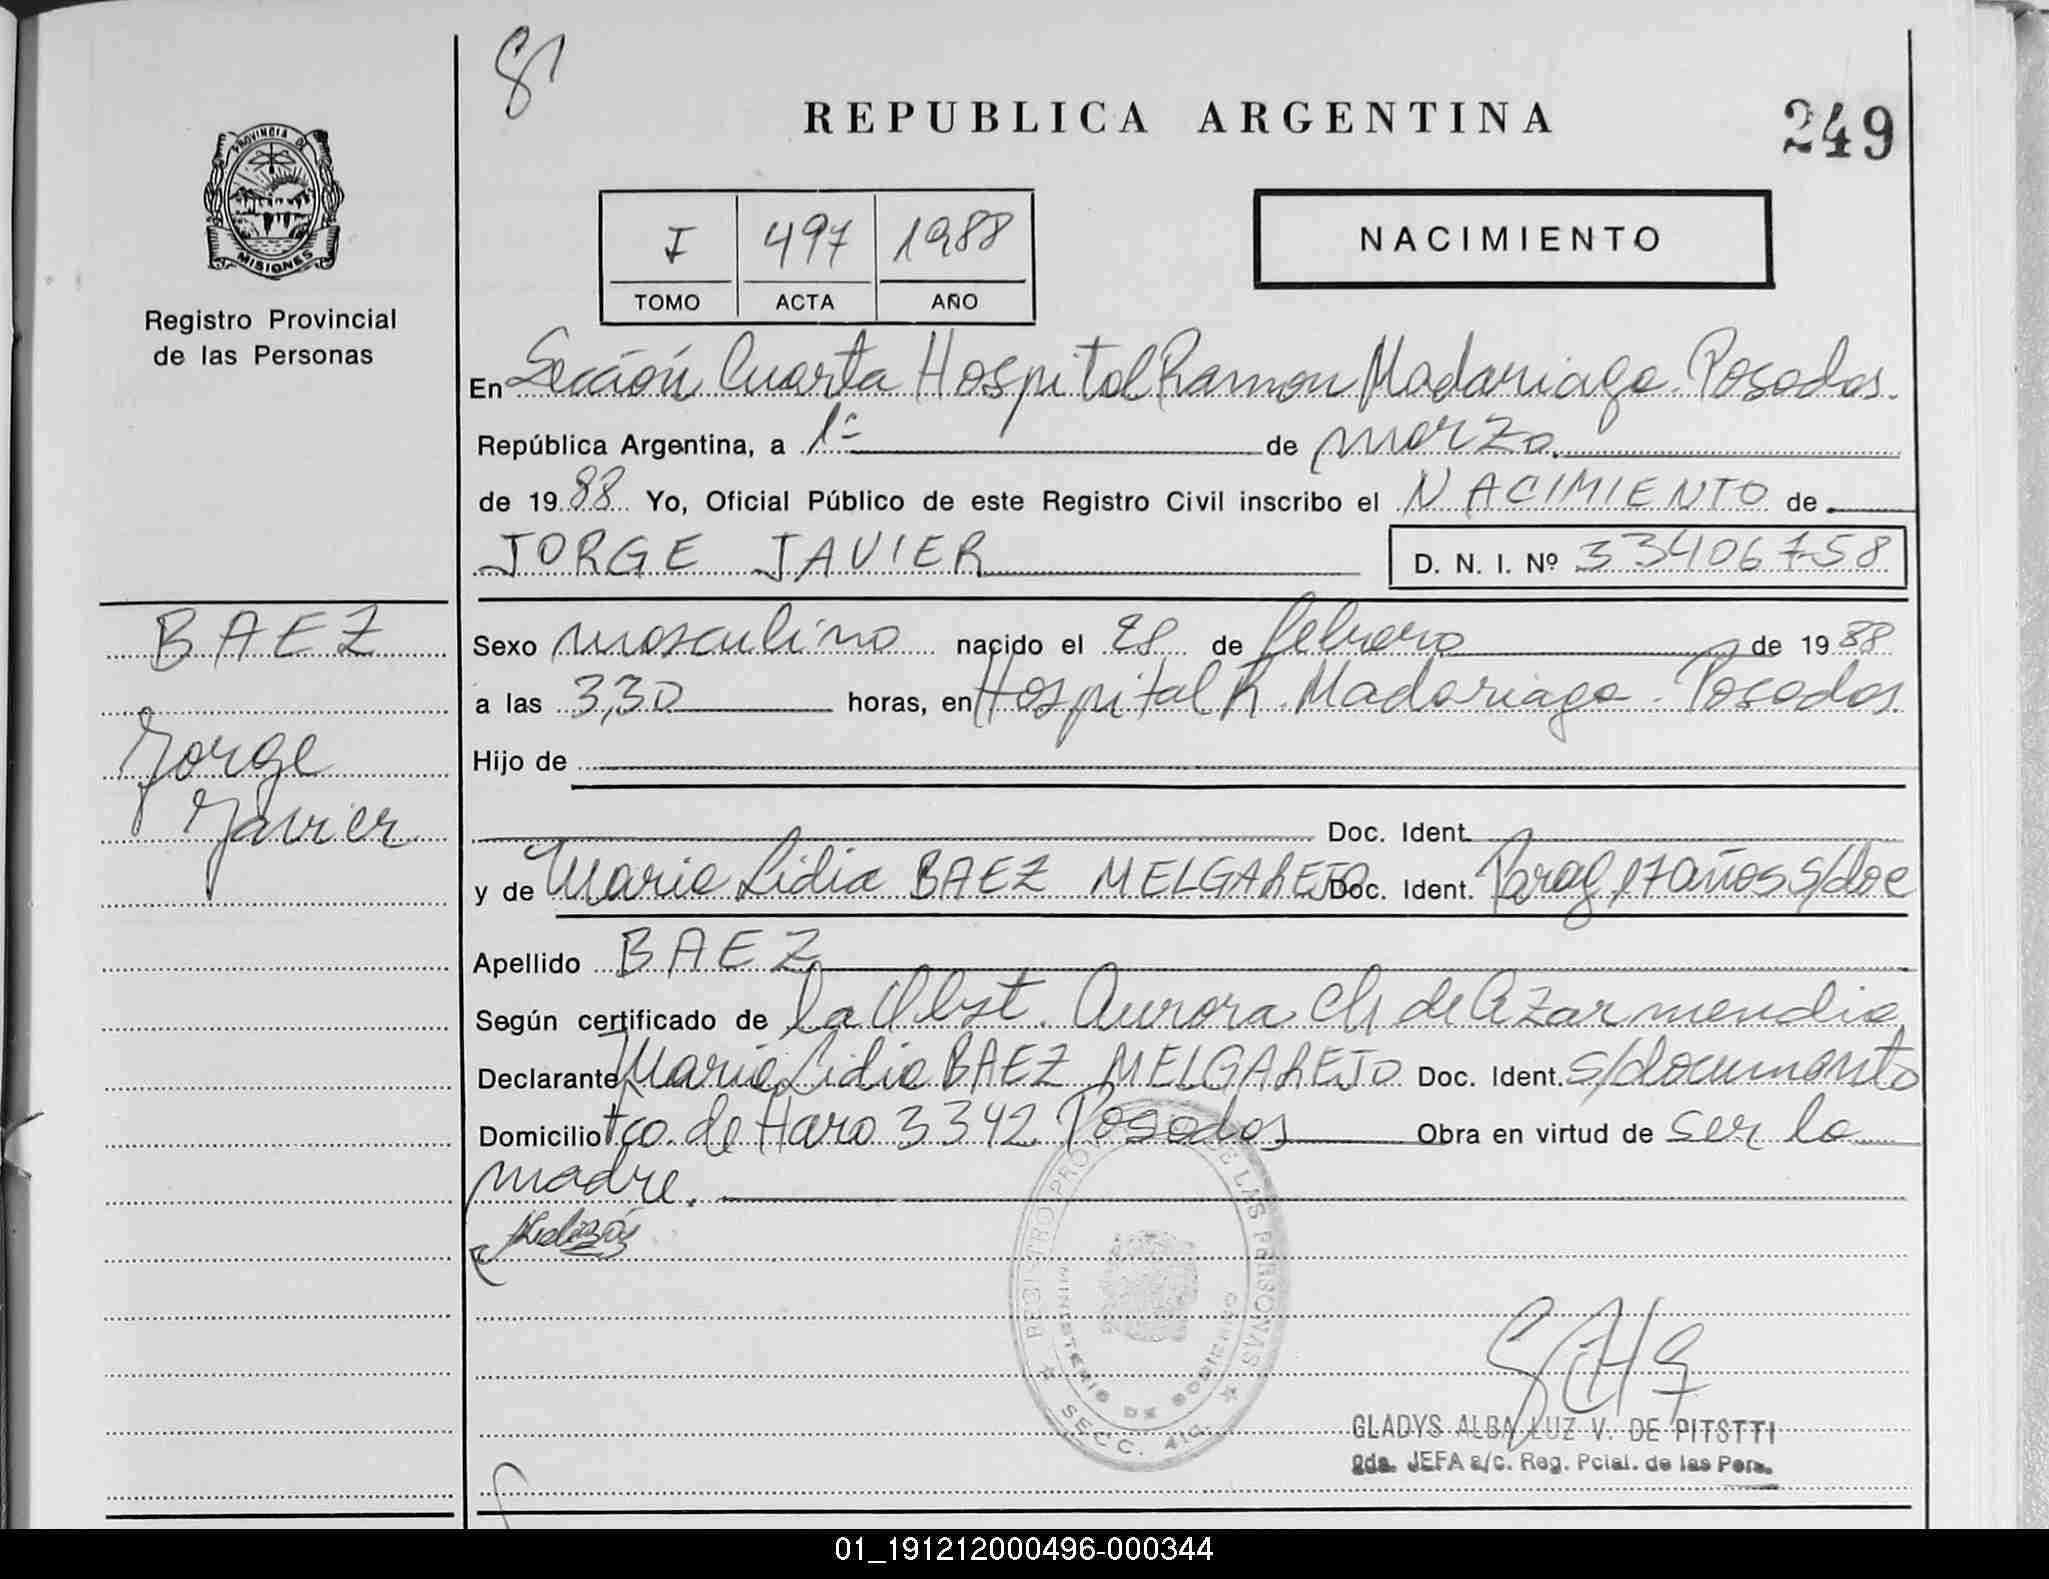 REPUBLICA ARGENTINA
249
PROVINCIA DE
MISIONES
Registro Provincial
de las Personas
I 497 1988
TOMO ACTA AÑO
NACIMIENTO
En Sección Cuarta Hospital Ramon Madariaga. Posadas.
República Argentina, a 1º de marzo.
de 1988 Yo, Oficial Público de este Registro Civil inscribo el NACIMIENTO de
JORGE JAVIER D. N. I. Nº 33406758
BAEZ
Jorge
Javier
Sexo masculino nacido el 28 de febrero de 1988
a las 3,30 horas, en Hospital R. Madariaga. Posadas.
Hijo de
Doc. Ident.
y de Maria Lidia BAEZ MELGAREJO Doc. Ident. Parag 17 años s/doc
Apellido BAEZ
Según certificado de la Obst. Aurora Ch de Azarmendia
Declarante Maria Lidia BAEZ MELGAREJO Doc. Ident. s/documento
Domicilio Fco. de Haro 3342 Posadas Obra en virtud de ser la
madre.
REGISTRO PROV DE LAS PERSONAS
MINISTERIO DE GOBIERNO
SECC. 4ta.
GLADYS ALBA LUZ V. DE PITSTTI
2da. JEFA a/c. Reg. Pcial. de las Pers.
01_191212000496-000344